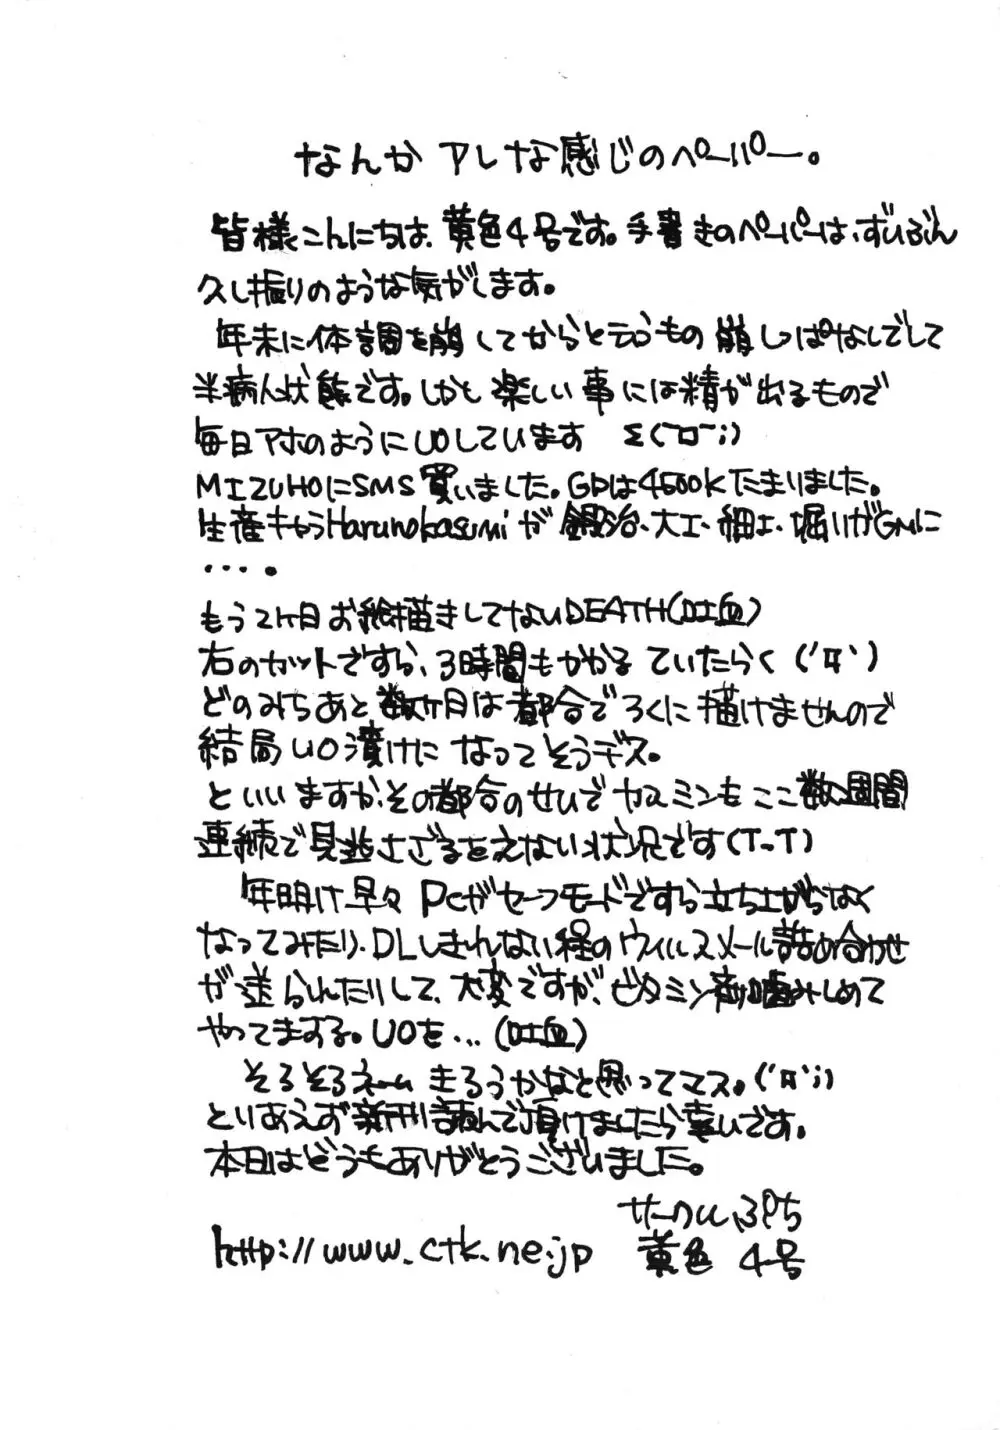 なんかアレな感じのペーパー。
皆様こんにちは、黄色4号です。手書きのペーパーは、ずいぶん
久し振りのような気がします。
年末に体調を崩してからと言うもの崩しっぱなしでして
半病人状態です。しかし楽しい事には精が出るもので
毎日アホのようにUOしています Σ(￣□￣;)
MIZUHOにSMS買いました。GPは4500Kたまりました。
生産キャラHarunokasumiが鍛治、大工、細工、掘りがGMに
・・・。
もう2ヶ月お絵描きしてないDEATH(吐血)
右のカットですら、3時間もかかるていたらく(´Д`)
どのみちあと数ヶ月は都合でろくに描けませんので
結局UO漬けになってそうデス。
といいますか、その都合のせいでヤスミンもここ数週間
連続で見逃さざるをえない状況です(T_T)
年明け早々PCがセーフモードですら立ち上がらなく
なってみたり、DLしきれない程のウィルスメール詰め合わせ
が送られたりして、大変ですが、ビタミン剤噛みしめて
やってますよ。UOを...(吐血)
そろそろネームきろうかなと思ってマス。(´Д`;)
とりあえず新刊読んで頂けましたら幸いです。
本日はどうもありがとうございました。
サークルぷち
http://www.ctk.ne.jp 黄色4号